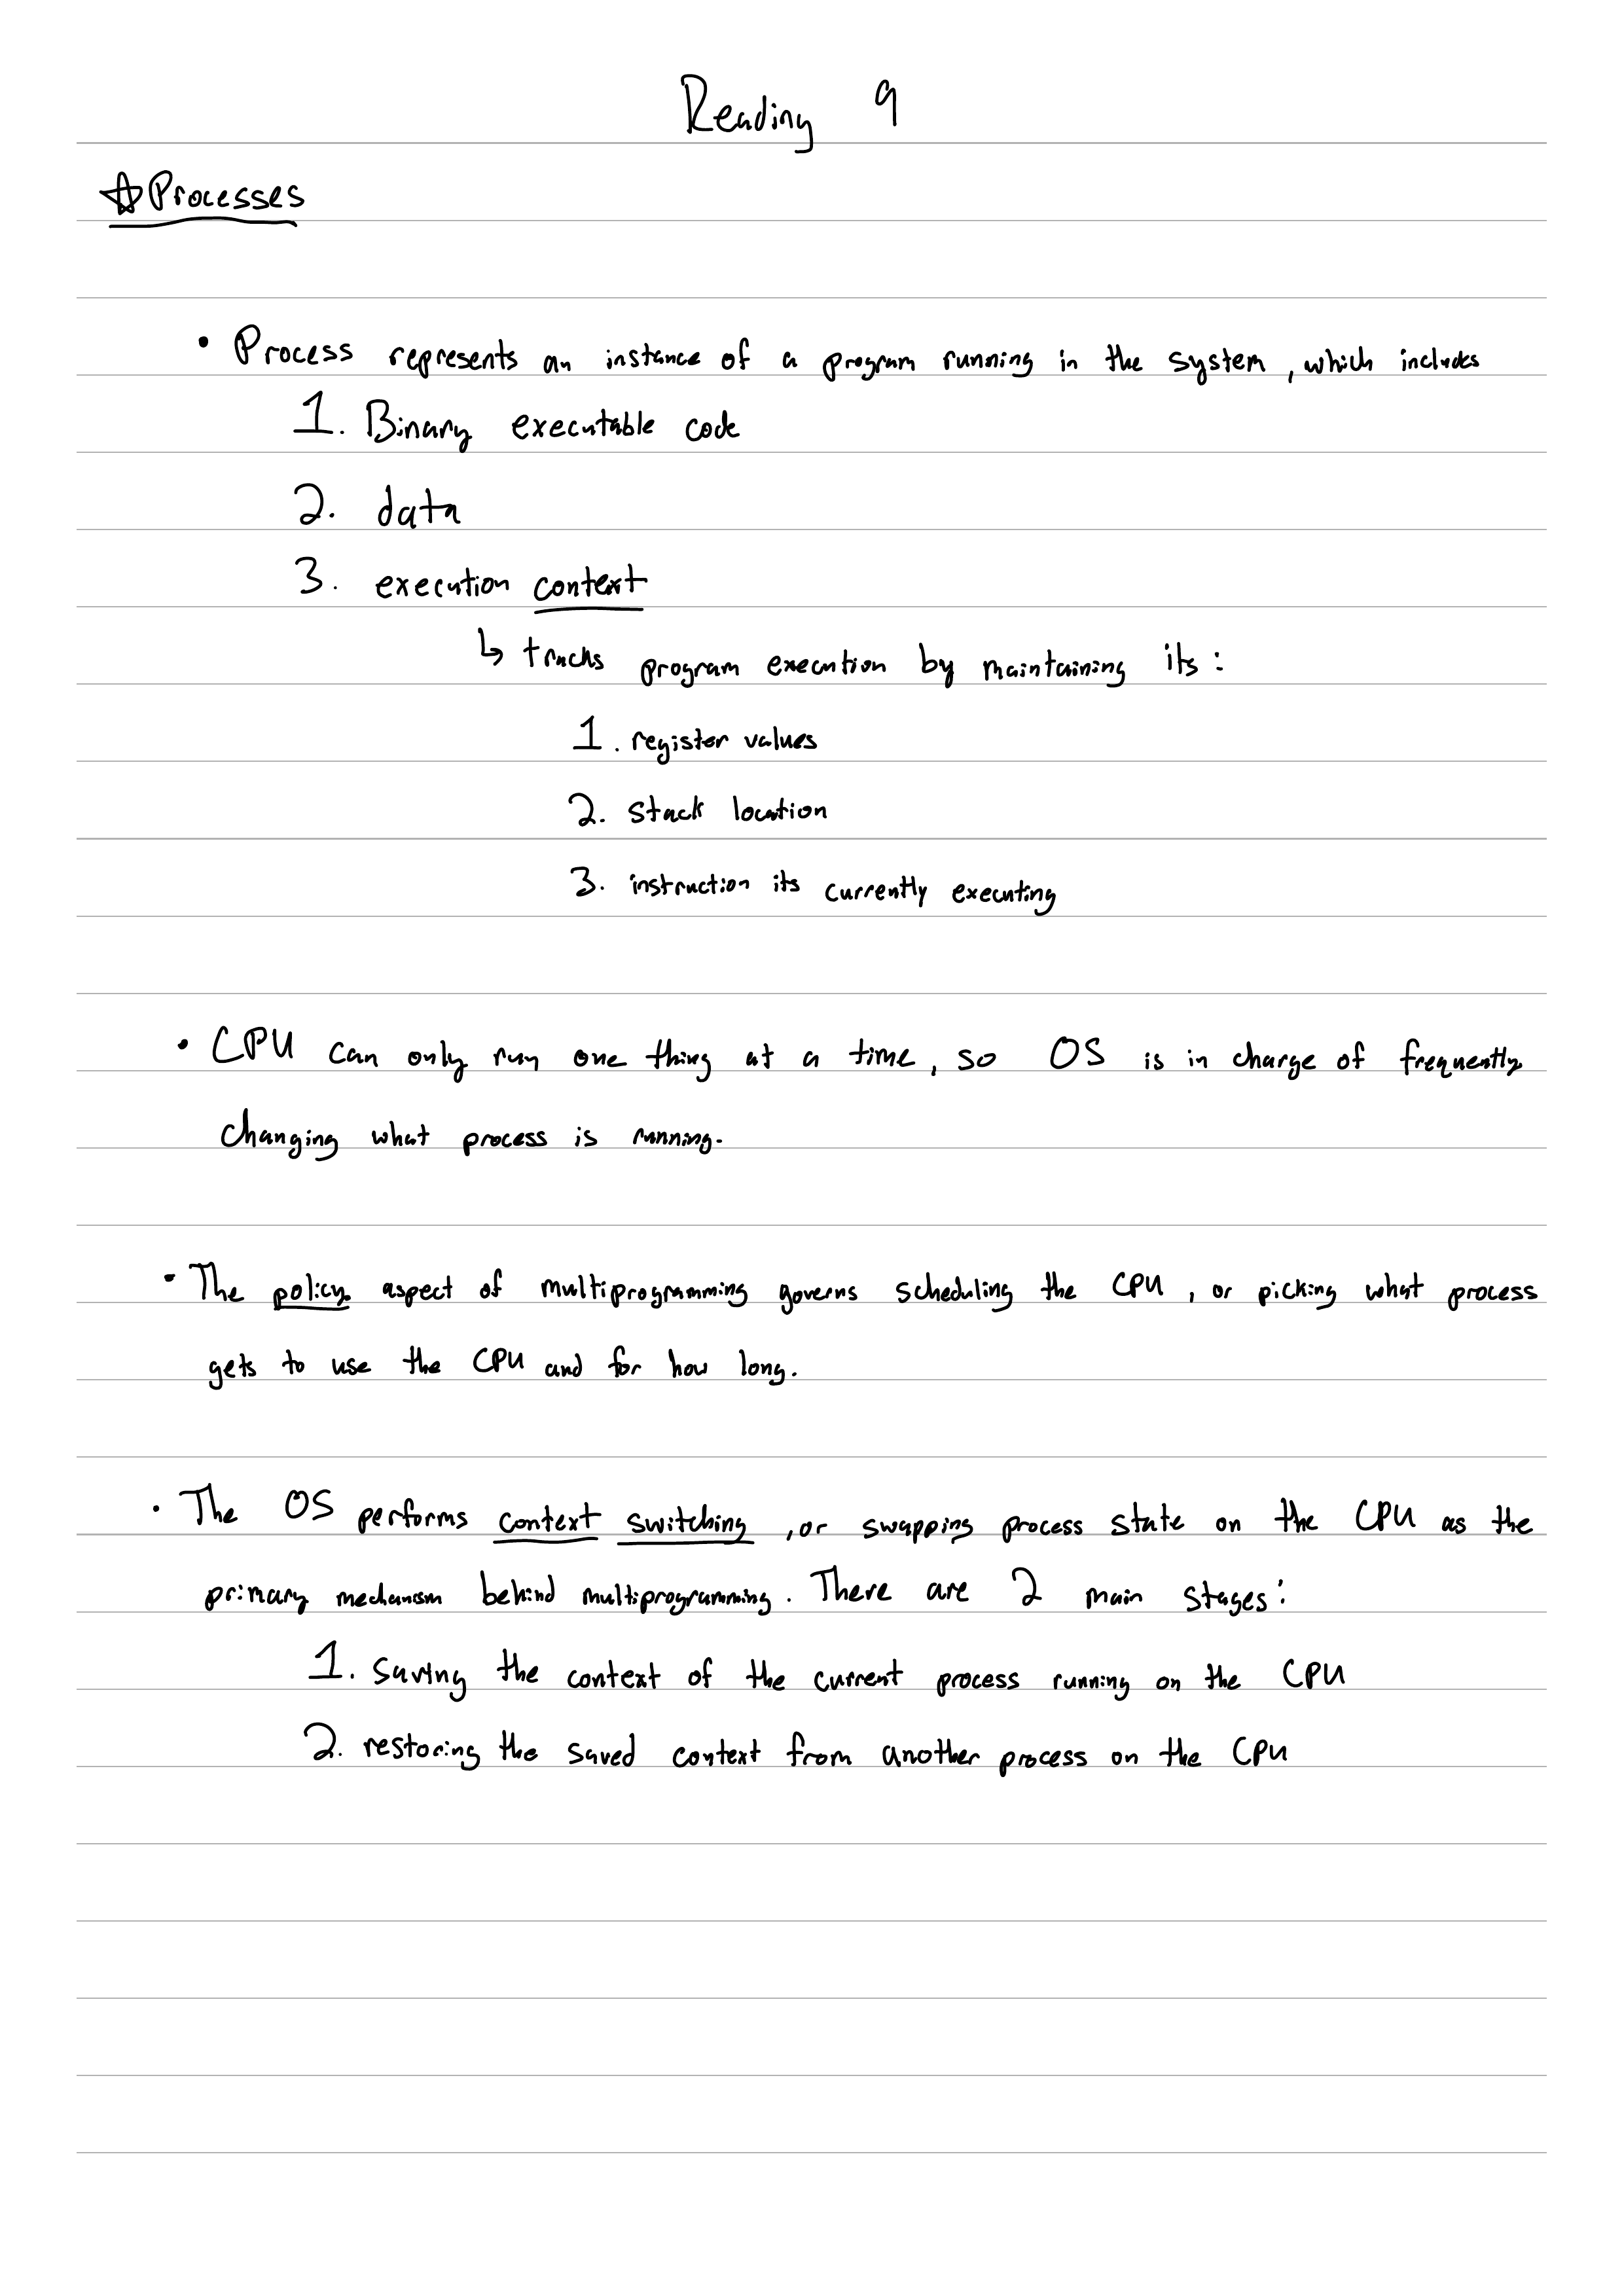 Reading 9
☆Processes
• Process represents an instance of a program running in the system, which includes
1. Binary executable code
2. data
3. execution context
↳ tracks program execution by maintaining its:
1. register values
2. stack location
3. instruction its currently executing
• CPU can only run one thing at a time, so OS is in charge of frequently
changing what process is running.
• The policy aspect of multiprogramming governs scheduling the CPU, or picking what process
gets to use the CPU and for how long.
• The OS performs context switching, or swapping process state on the CPU as the
primary mechanism behind multiprogramming. There are 2 main stages:
1. saving the context of the current process running on the CPU
2. restoring the saved context from another process on the CPU